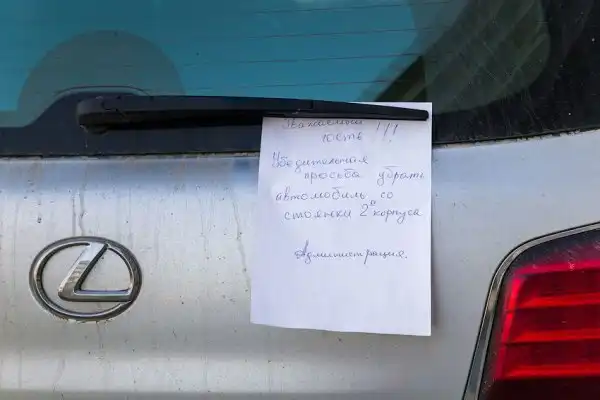 Уважаемый
гость !!!
Убедительная
просьба убрать
автомобиль со
стоянки 2е корпуса
Администрация.